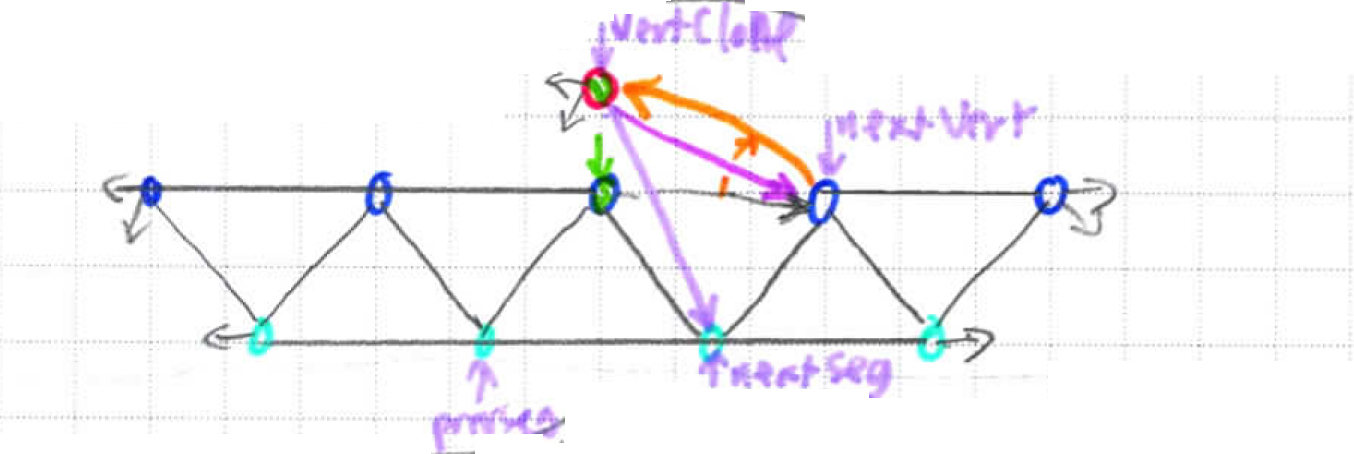 vertClone
nextVert
nextSeg
prevSeg